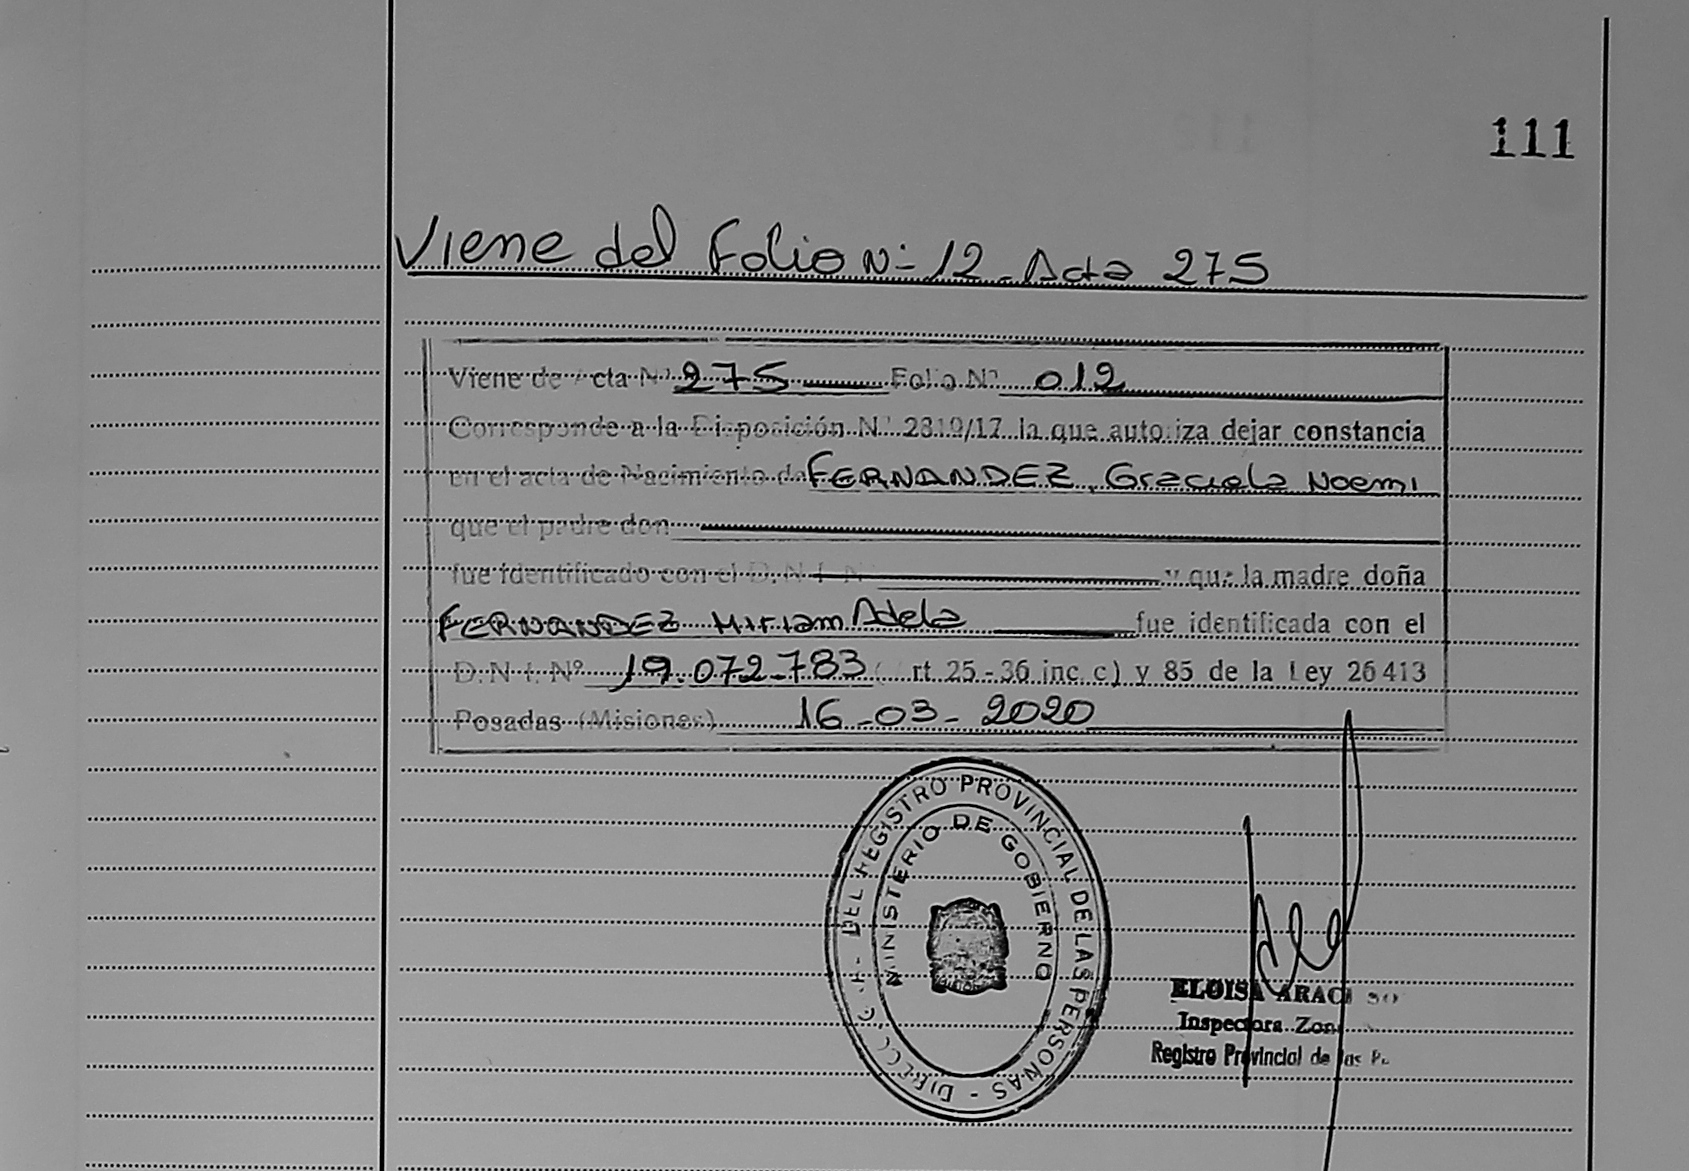 111
Viene del Folio Nº 12 Acta 275
Viene de Acta Nº 275 Folio Nº 012
Corresponde a la Disposición Nº 2819/17 la que autoriza dejar constancia
en el acta de Nacimiento de FERNANDEZ, Graciela Noemi
que el padre don
fue identificado con el D.N.I. Nº y que la madre doña
FERNANDEZ Miriam Adela fue identificada con el
D.N.I. Nº 19.072.783 (Art. 25-36 inc. c) y 85 de la Ley 26413
Posadas (Misiones) 16-03-2020
DEL REGISTRO PROVINCIAL DE LAS PERSONAS
MINISTERIO DE GOBIERNO
ELOISA
Inspectora
Registro Provincial de las